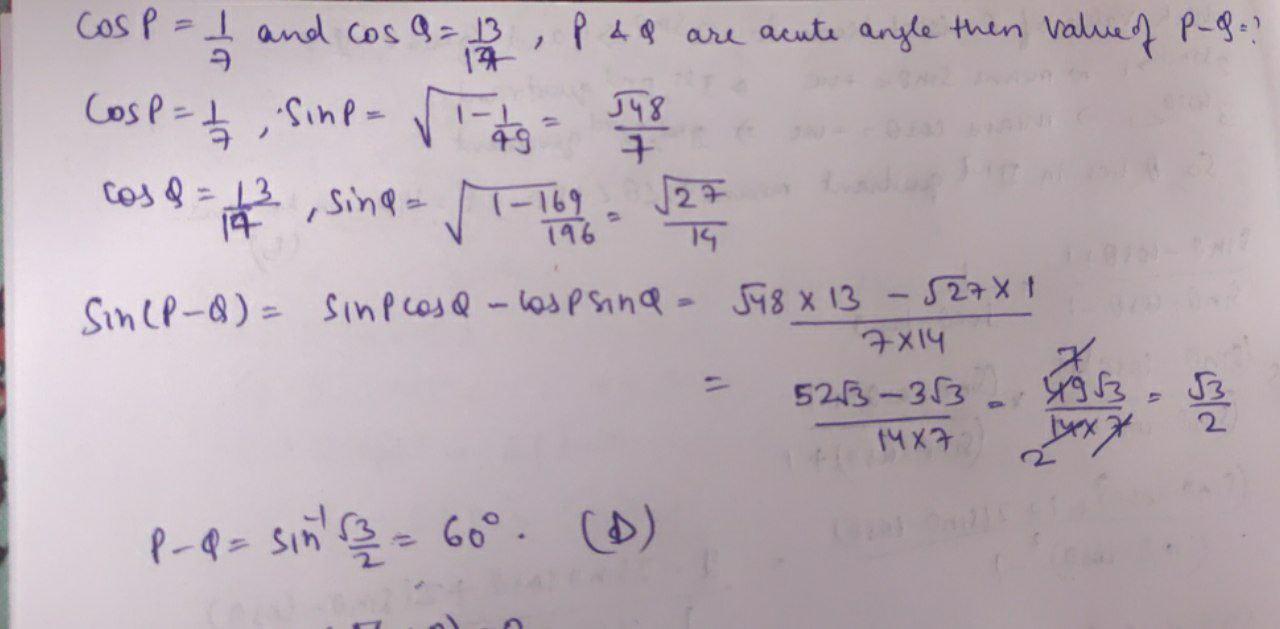 Cos P = 1/7 and cos Q = 13/14, P & Q are acute angle then value of P-Q=?
Cos P = 1/7, Sin P = √(1-1/49) = √48/7
Cos Q = 13/14, Sin Q = √(1-169/196) = √27/14
Sin(P-Q) = Sin P cos Q - Cos P sin Q = (√48 × 13 - √27 × 1)/(7×14)
= (52√3 - 3√3)/(14×7) = 49√3/(14×7) = √3/2
P-Q = sin⁻¹ √3/2 = 60°. (D)